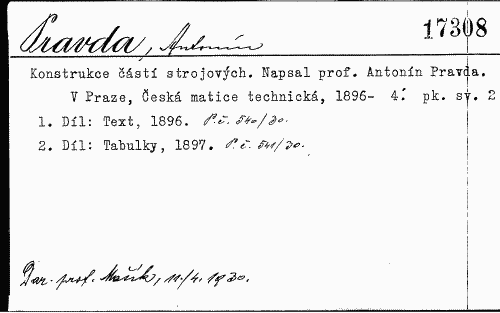 Pravda, Antonín
17308
Konstrukce částí strojových. Napsal prof. Antonín Pravda.
V Praze, Česká matice technická, 1896- 4° pk. sv. 2
1. Díl: Text, 1896. P.č. 540/30.
2. Díl: Tabulky, 1897. P.č. 541/30.
Dar. prof. 11./4. 1930.